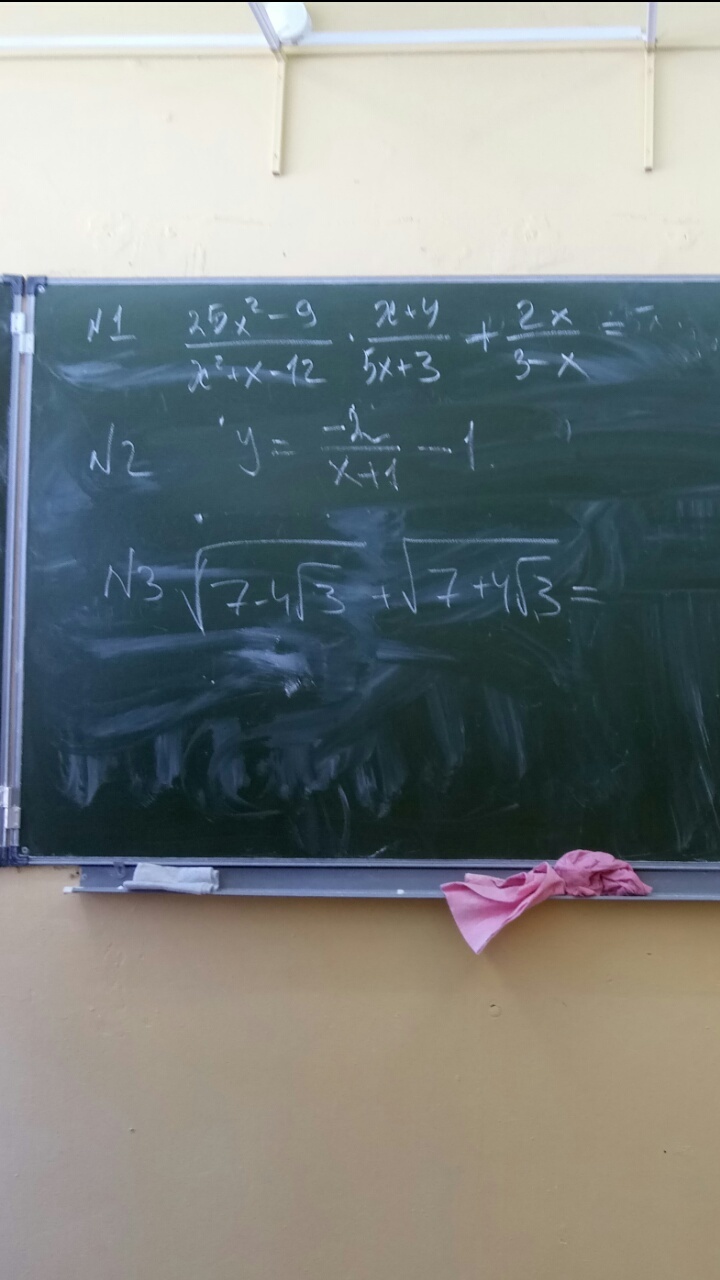 N1 (25x²-9)/(x²+x-12) · (x+4)/(5x+3) + 2x/(3-x) =
N2 y = -2/(x+1) - 1.
N3 √(7-4√3) + √(7+4√3) =